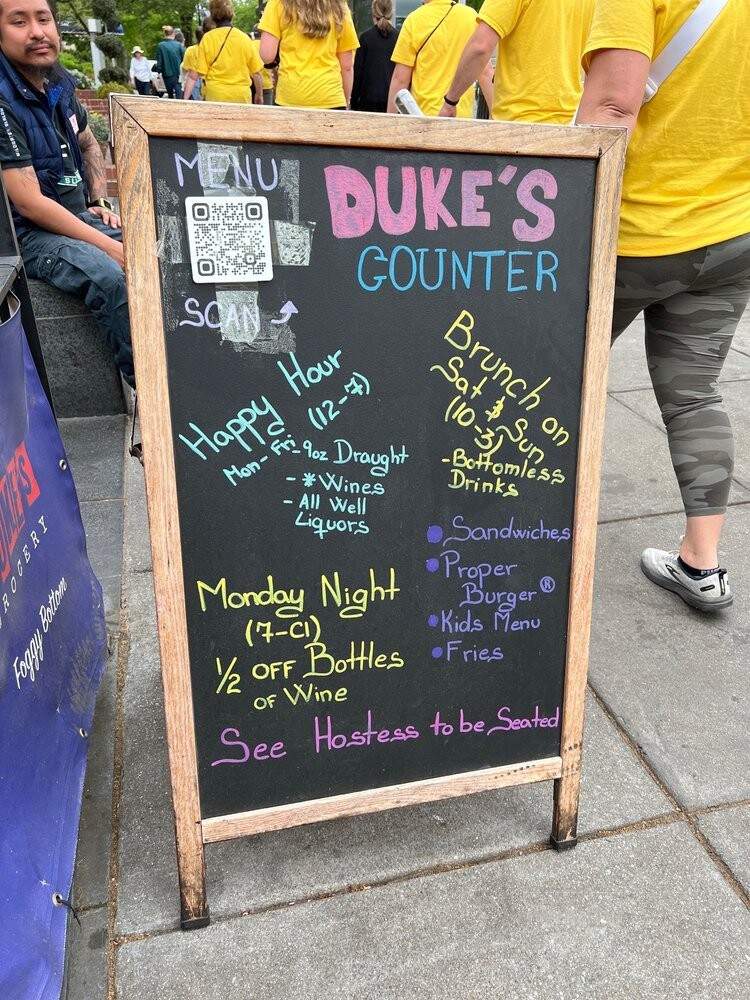 MENU
SCAN
DUKE'S
COUNTER
Happy Hour
(12-7)
Mon-Fri
-9oz Draught
-*Wines
-All Well
Liquors
Brunch on
Sat & Sun
(10-3)
-Bottomless
Drinks
Sandwiches
Proper
Burger®
Kids Menu
Fries
Monday Night
(7-Cl)
1/2 OFF Bottles
OF Wine
See Hostess to be Seated
Foggy Bottom